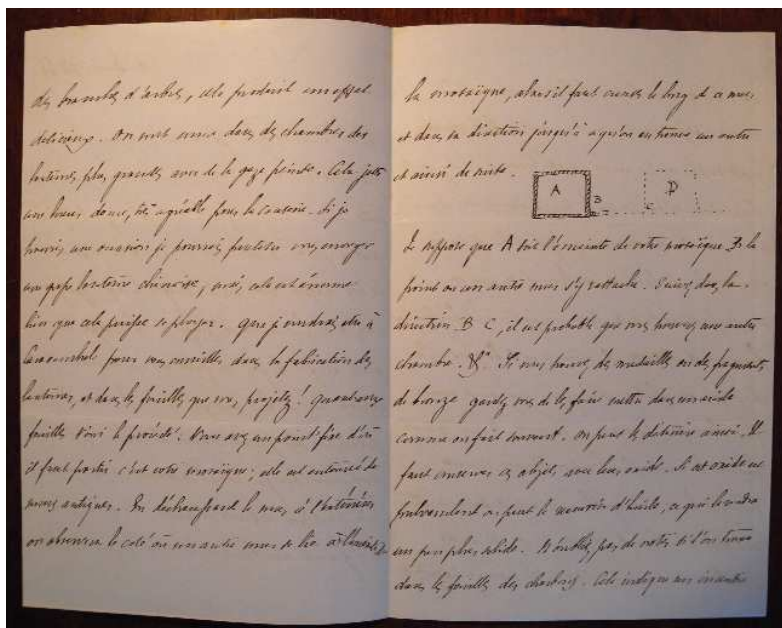 des branches d'arbres, cela produit un effet
délicieux. On met aussi dans des chambres des
lanternes plus grandes avec de la gaze peinte. Cela jette
une lueur douce, très agréable pour la causerie. Si je
trouvais une occasion je pourrais peut-être vous envoyer
une grosse lanterne chinoise, mais cela est énorme
bien que cela puisse se ployer. Que je voudrais être à
pour vous conseiller dans la fabrication des
lanternes, et dans les fouilles que vous projetez! Quant aux
fouilles voici le procédé. Vous avez un point fixe d'où
il faut partir c'est votre mosaïque; elle est entourée de
murs antiques. En déchaussant le mur à l'extérieur
on observera le côté où un autre mur se lie à
la mosaïque, alors il faut creuser le long de ce mur
et dans sa direction jusqu'à ce qu'on en trouve un autre
et ainsi de suite.
A B C D
Je suppose que A soit l'enceinte de votre mosaïque B le
point où un autre mur s'y rattache. Suivez donc la
direction B C, il est probable que vous trouverez une autre
chambre. Si vous trouvez des médailles ou des fragments
de bronze gardez vous de les faire mettre dans un acide
comme on fait souvent. On peut les détruire ainsi. Il
faut conserver ces objets avec leur oxide. Si cet oxide est
pulvérulent on peut le nourrir d'huile, ce qui le rendra
un peu plus solide. N'oubliez pas de noter si l'on trouve
dans les fouilles des charbons. Cela indique un incendie